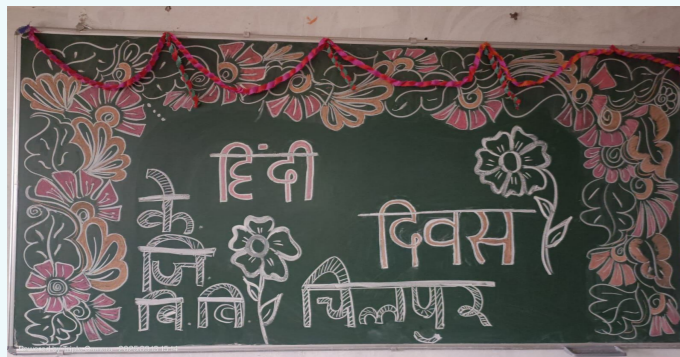 हिंदी
दिवस
के.
जि.
बि. वि. चिलपुर